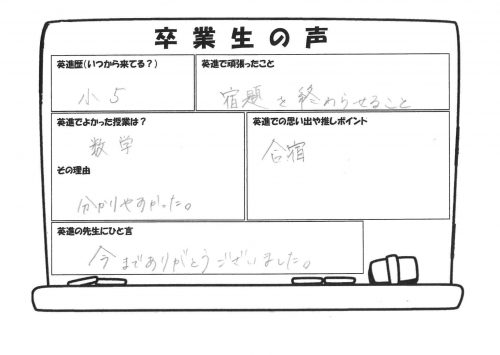 卒業生の声
英進歴(いつから来てる?)
小5
英進で頑張ったこと
宿題を終わらせること
英進でよかった授業は?
数学
その理由
分かりやすかった。
英進での思い出や推しポイント
合宿
英進の先生にひと言
今までありがとうございました。